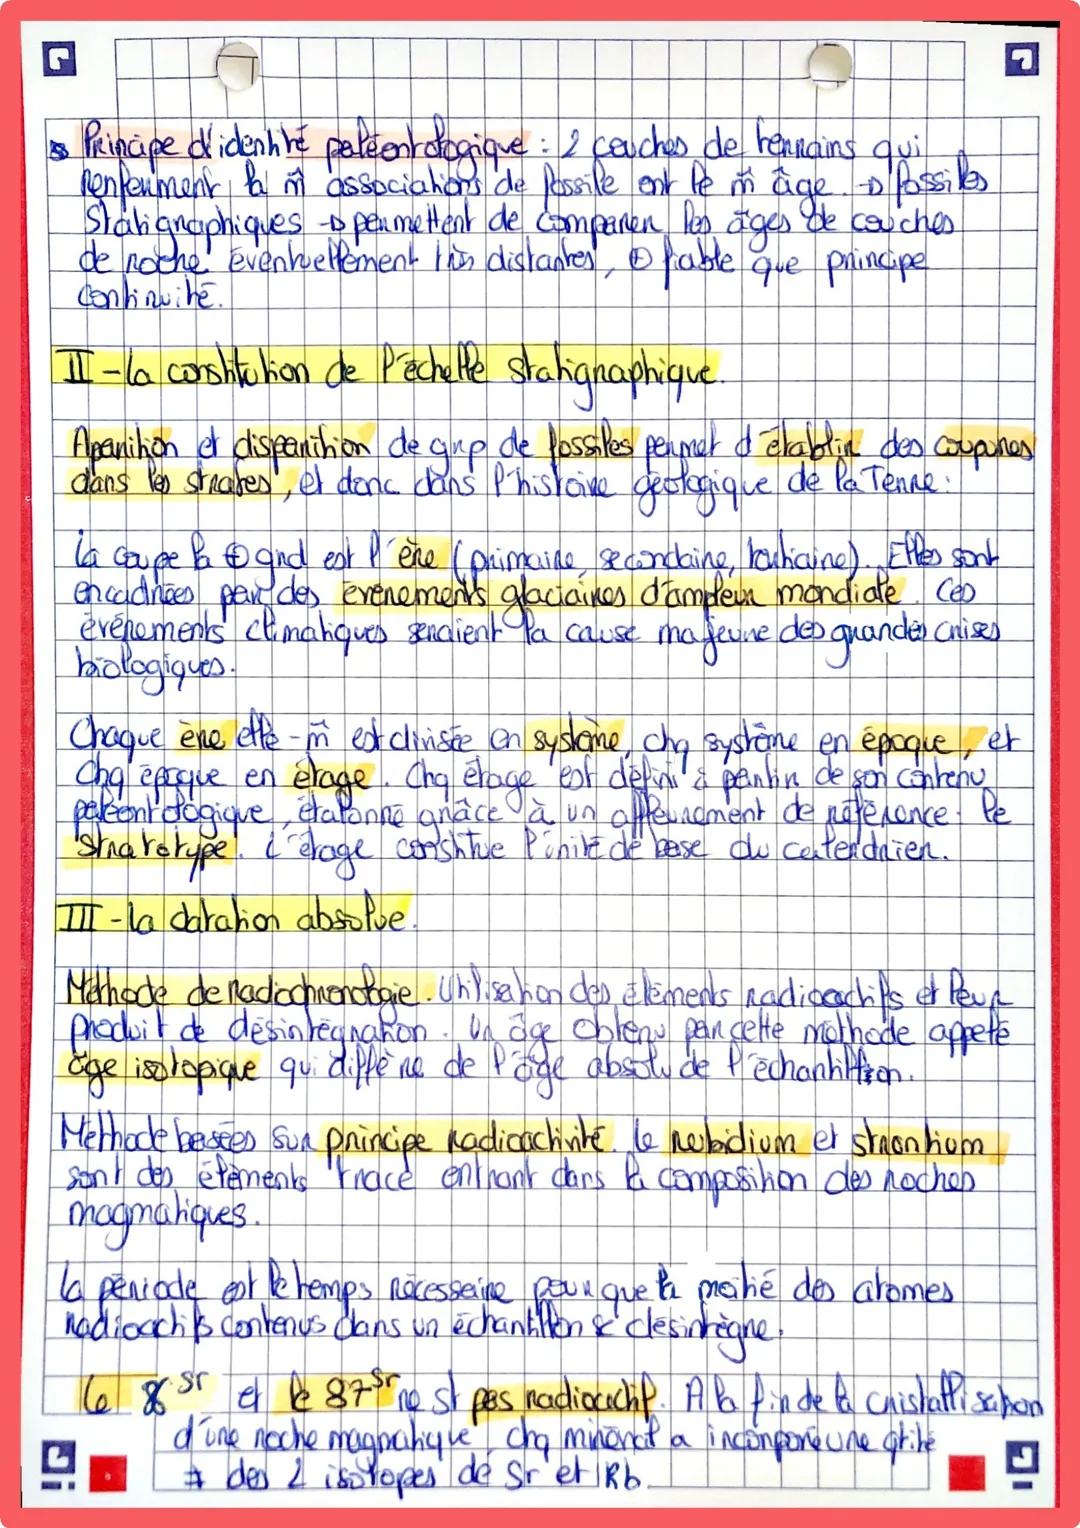 Principe d'identité paléontologique : 2 couches de terrains qui
renferment la m̂ associations de fossile ont le m̂ âge. → fossiles
Statigraphiques → permettent de comparer les âges de couches
de roche éventuellement très distantes, ⊕ fiable que principe
continuité.
II - La constitution de l'échelle statigraphique.
Aparition et disparition de grp de fossiles permet d'établir des coupures
dans les strates, et donc dans l'histoire géologique de la Terre :
La coupe la ⊕ grd est l'ère (primaire, secondaire, tertiaire). Elles sont
encadrées par des évènements glaciaires d'ampleur mondiale. Ces
évènements climatiques seraient la cause majeure des grandes crises
biologiques.
Chaque ère elle-m̂ est divisée en système, chq système en époque, et
Chq époque en étage. Chq étage est défini à partir de son contenu
paléontologique, étalonné grâce à un affleurement de référence : le
Stratotype. L'étage constitue l'unité de base du calendrier.
III - La datation absolue.
Méthode de radiochronologie. Utilisation des éléments radioactifs et leur
produit de désintégration. Un âge obtenu par cette méthode appelé
âge isotopique qui diffère de l'âge absolu de l'échantillon.
Méthode basées sur principe radioactivité. Le rubidium et strontium
sont des éléments trace entrant dans la composition des roches
magmatiques.
La période est le temps nécessaire pour que la moitié des atomes
radioactifs contenus dans un échantillon se désintègre.
Le 86 Sr et le 87 Sr ne st pas radioactif. A la fin de la cristallisation
d'une roche magmatique, chq minéral a incorporé une qtité
≠ des 2 isotopes de Sr et Rb.